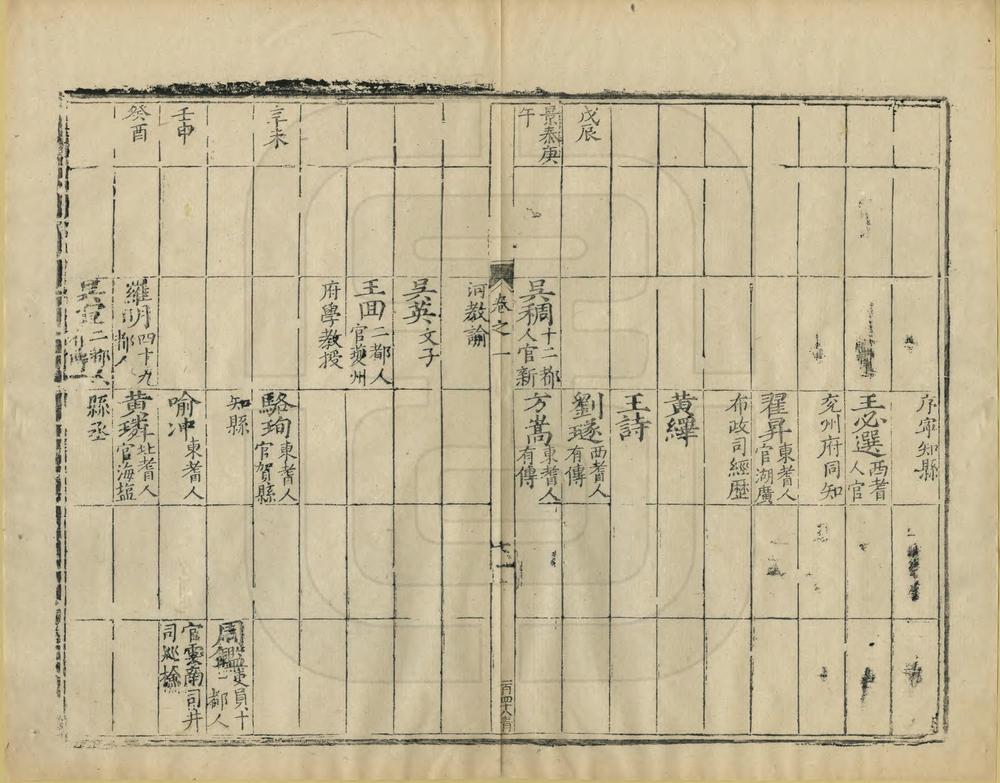 序寧知縣
王必選西耆人官
兖州府同知
翟昇東耆人官湖廣
布政司經歴
黄繹
王詩
戊辰
劉璲西耆人有傳
景泰庚
午
吳稠十二都人官新
方嵩東耆人有傳
卷之一
河教諭
吳英文子
王囬二都人官
府學教授
辛未
駱珣東耆人官賀縣
知縣
周鑑吏員十二都人
官雲南司井
司廵檢
壬申
喻冲東耆人
癸酉
羅明四十九都人
黄璘北耆人官海盐
吳宣二都人
縣丞